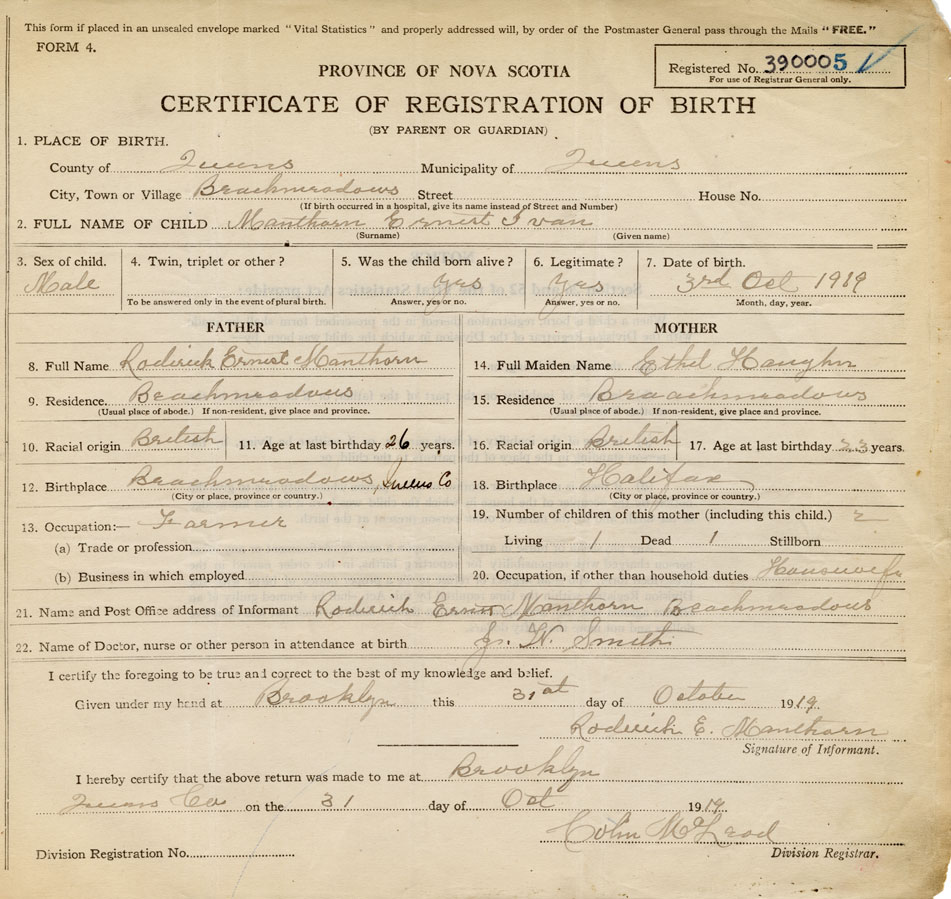 This form if placed in an unsealed envelope marked "Vital Statistics" and properly addressed will, by order of the Postmaster General pass through the Mails "FREE."
FORM 4.
Registered No. 3900005
For use of Registrar General only.
PROVINCE OF NOVA SCOTIA
CERTIFICATE OF REGISTRATION OF BIRTH
(BY PARENT OR GUARDIAN)
1. PLACE OF BIRTH.
County of Queens Municipality of Queens
City, Town or Village Beachmeadows Street House No.
(If birth occurred in a hospital, give its name instead of Street and Number)
2. FULL NAME OF CHILD Manthorn Ernest Ivan
(Surname) (Given name)
3. Sex of child. 4. Twin, triplet or other? 5. Was the child born alive? 6. Legitimate? 7. Date of birth.
Male Yes Yes 3rd Oct 1919
To be answered only in the event of plural birth. Answer, yes or no. Answer, yes or no. Month, day, year.
FATHER MOTHER
8. Full Name Roderick Ernest Manthorn 14. Full Maiden Name Ethel Haughn
9. Residence. Beachmeadows 15. Residence Beachmeadows
(Usual place of abode.) If non-resident, give place and province. (Usual place of abode.) If non-resident, give place and province.
10. Racial origin British 11. Age at last birthday 26 years. 16. Racial origin British 17. Age at last birthday 23 years.
12. Birthplace Beachmeadows, Queens Co 18. Birthplace Halifax
(City or place, province or country.) (City or place, province or country.)
13. Occupation:— Farmer 19. Number of children of this mother (including this child.) 2
(a) Trade or profession Living 1 Dead 1 Stillborn
(b) Business in which employed 20. Occupation, if other than household duties Housewife
21. Name and Post Office address of Informant Roderick Ernest Manthorn Beachmeadows
22. Name of Doctor, nurse or other person in attendance at birth W. Smith
I certify the foregoing to be true and correct to the best of my knowledge and belief.
Given under my hand at Brooklyn this 31st day of October 1919.
Roderick E. Manthorn
Signature of Informant.
I hereby certify that the above return was made to me at Brooklyn
Queens Co on the 31 day of Oct 1919
Colin McLeod
Division Registration No. Division Registrar.